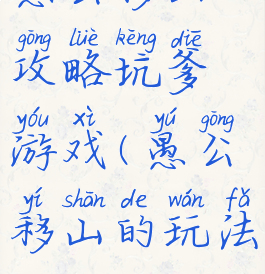 gōng lüè kēng diē
攻略坑爹
yóu xì yú gōng
游戏(愚公
yí shān de wán fǎ
移山的玩法